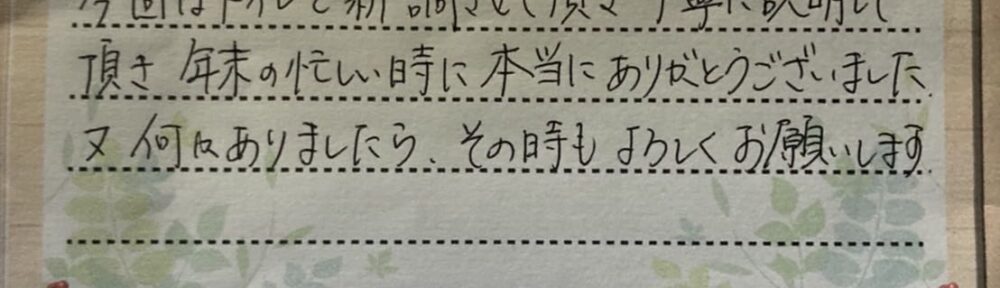 頂き 年末の忙しい時に 本当にありがとうございました.
又 何かありましたら、その時も よろしくお願いします.